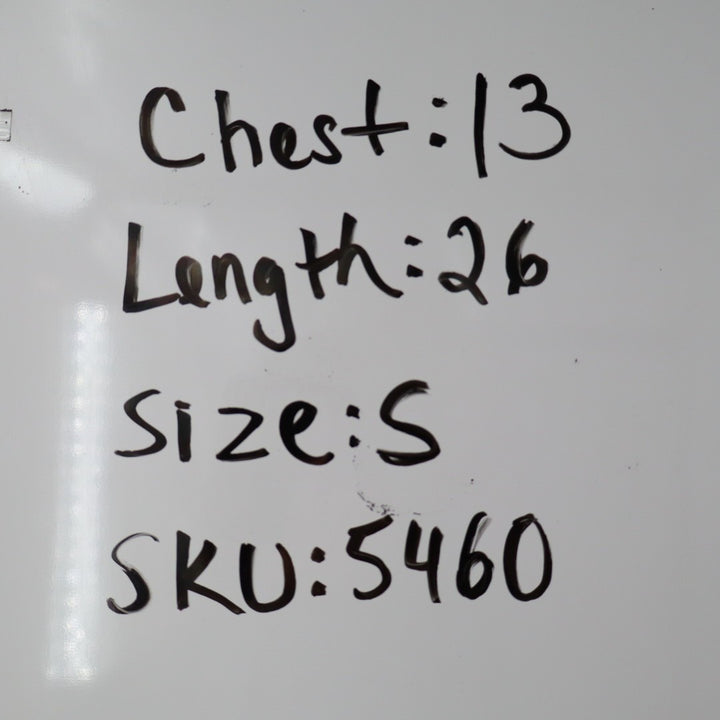 Chest:13
Length:26
Size:S
SKU:5460